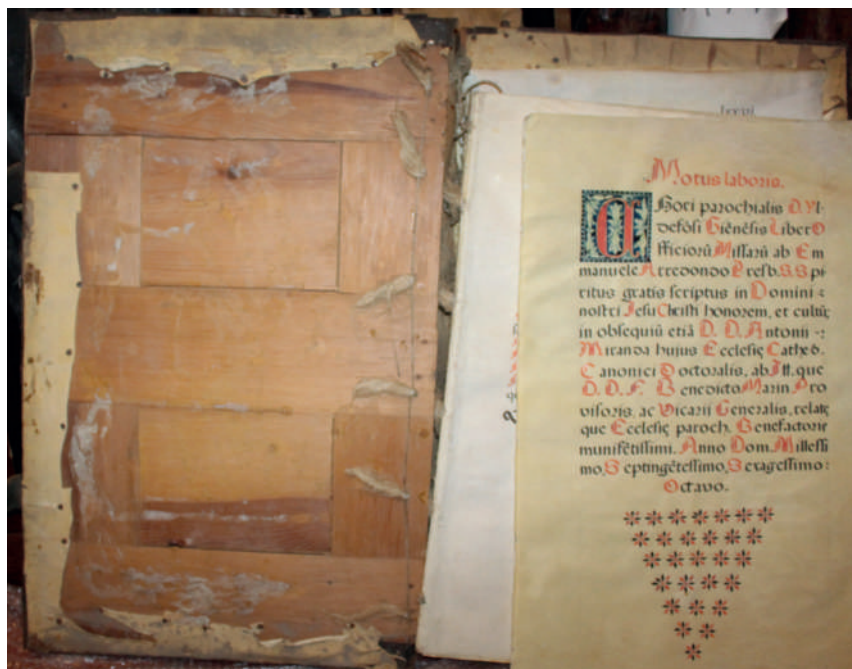 lxxvi
Motus laboris.
CHori parochialis D. Yl-
defōsi Giēnēsis Liber O
fficiorū Missarū ab Em
manuele Arredondo Presb. S. Spi
ritus gratis scriptus in Domini
nostri Jesu Christi honorem, et cultū;
in obsequiū etiā D. D. Antonii -:
Miranda hujus Ecclesię Cathed.
Canonici Doctoralis, ab Jll. que
D. D. F. Benedicto Marin Pro
visoris, ac Vicarii Generalis, relatę
que Ecclesię paroch. Benefactorie
munifētissimi. Anno Dom. Millessi
mo, Septingētessimo, Sexagessimo:
Octavo.